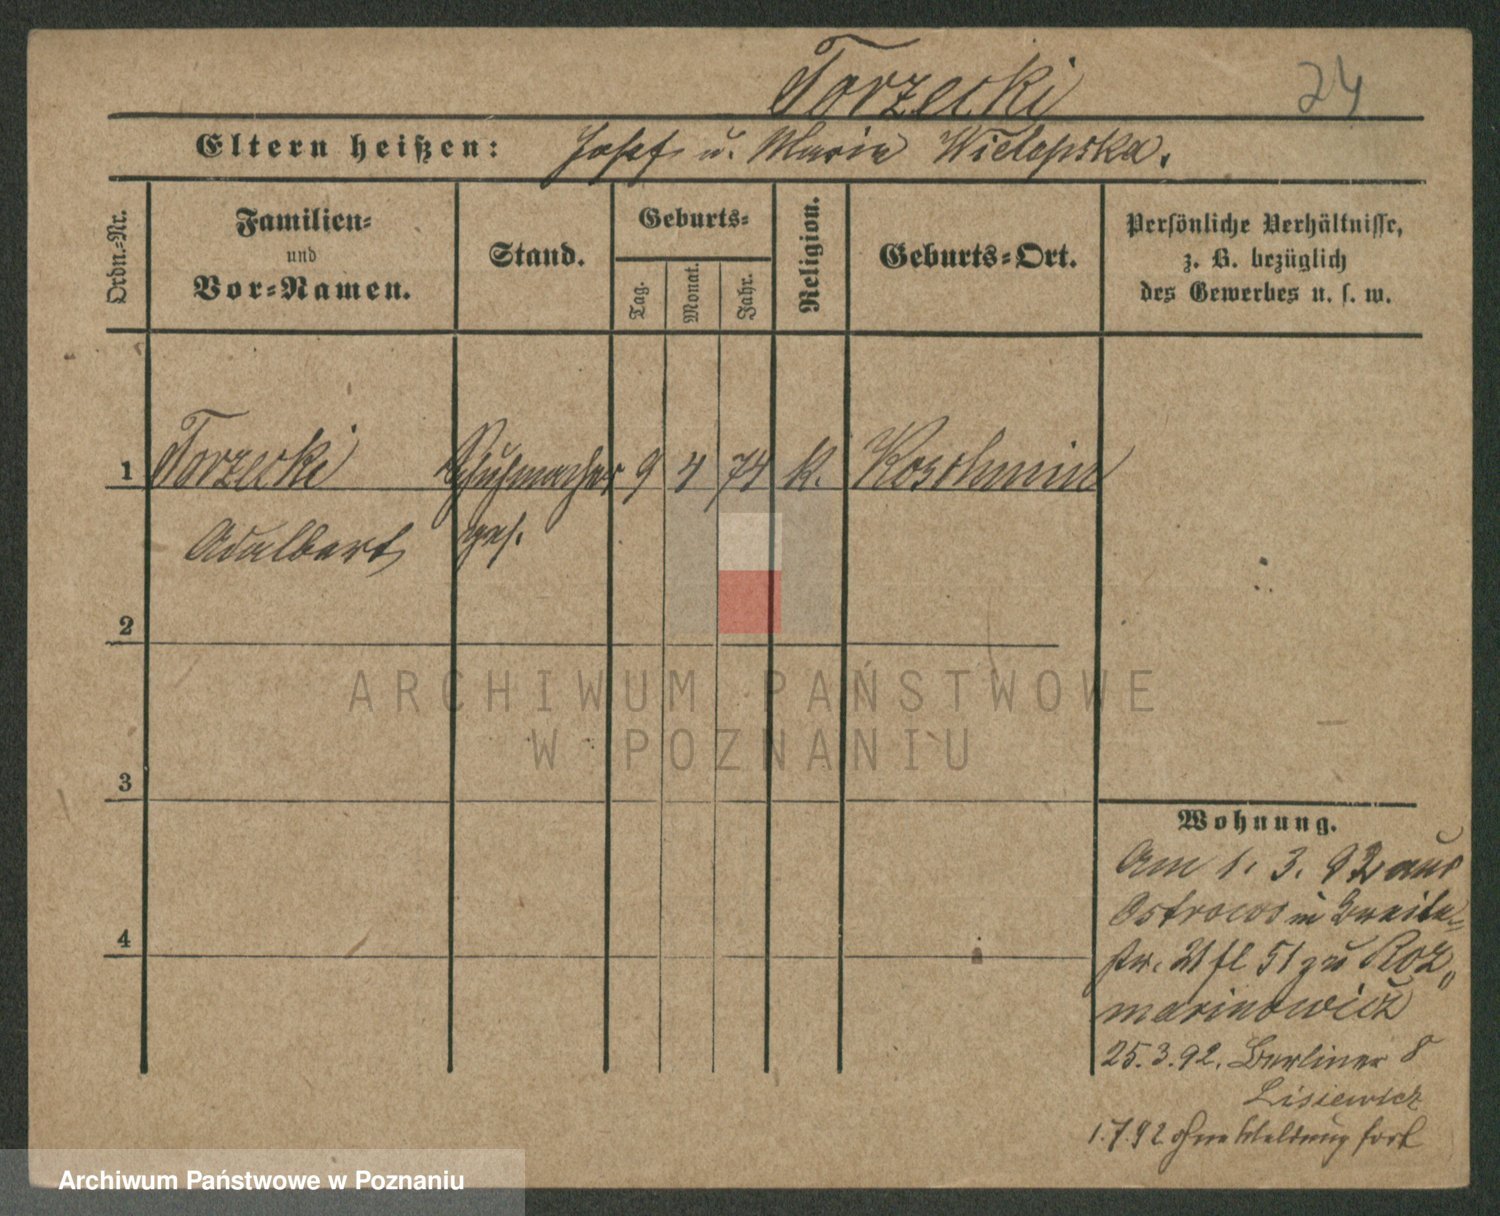 Torzecki 24
Eltern heißen: Josef u. Maria Wielopska.
Ordn.-Nr.
Familien-
und
Vor-Namen.
Stand.
Geburts-
Tag.
Monat.
Jahr.
Religion.
Geburts-Ort.
Persönliche Verhältnisse,
z. B. bezüglich
des Gewerbes u. s. w.
1 Torzecki Schuhmacher 9 4 74 k. Koschmin
Adalbert ges.
2
3
4
Wohnung.
Am 1. 3. 92 aus
Ostrowo in Breite-
str. 21 fl 51 zu Roz-
marinowicz
25.3.92. Berliner 8
Lisiewicz
1.7.92 ohne Meldung fort
ARCHIWUM PAŃSTWOWE
W POZNANIU
Archiwum Państwowe w Poznaniu